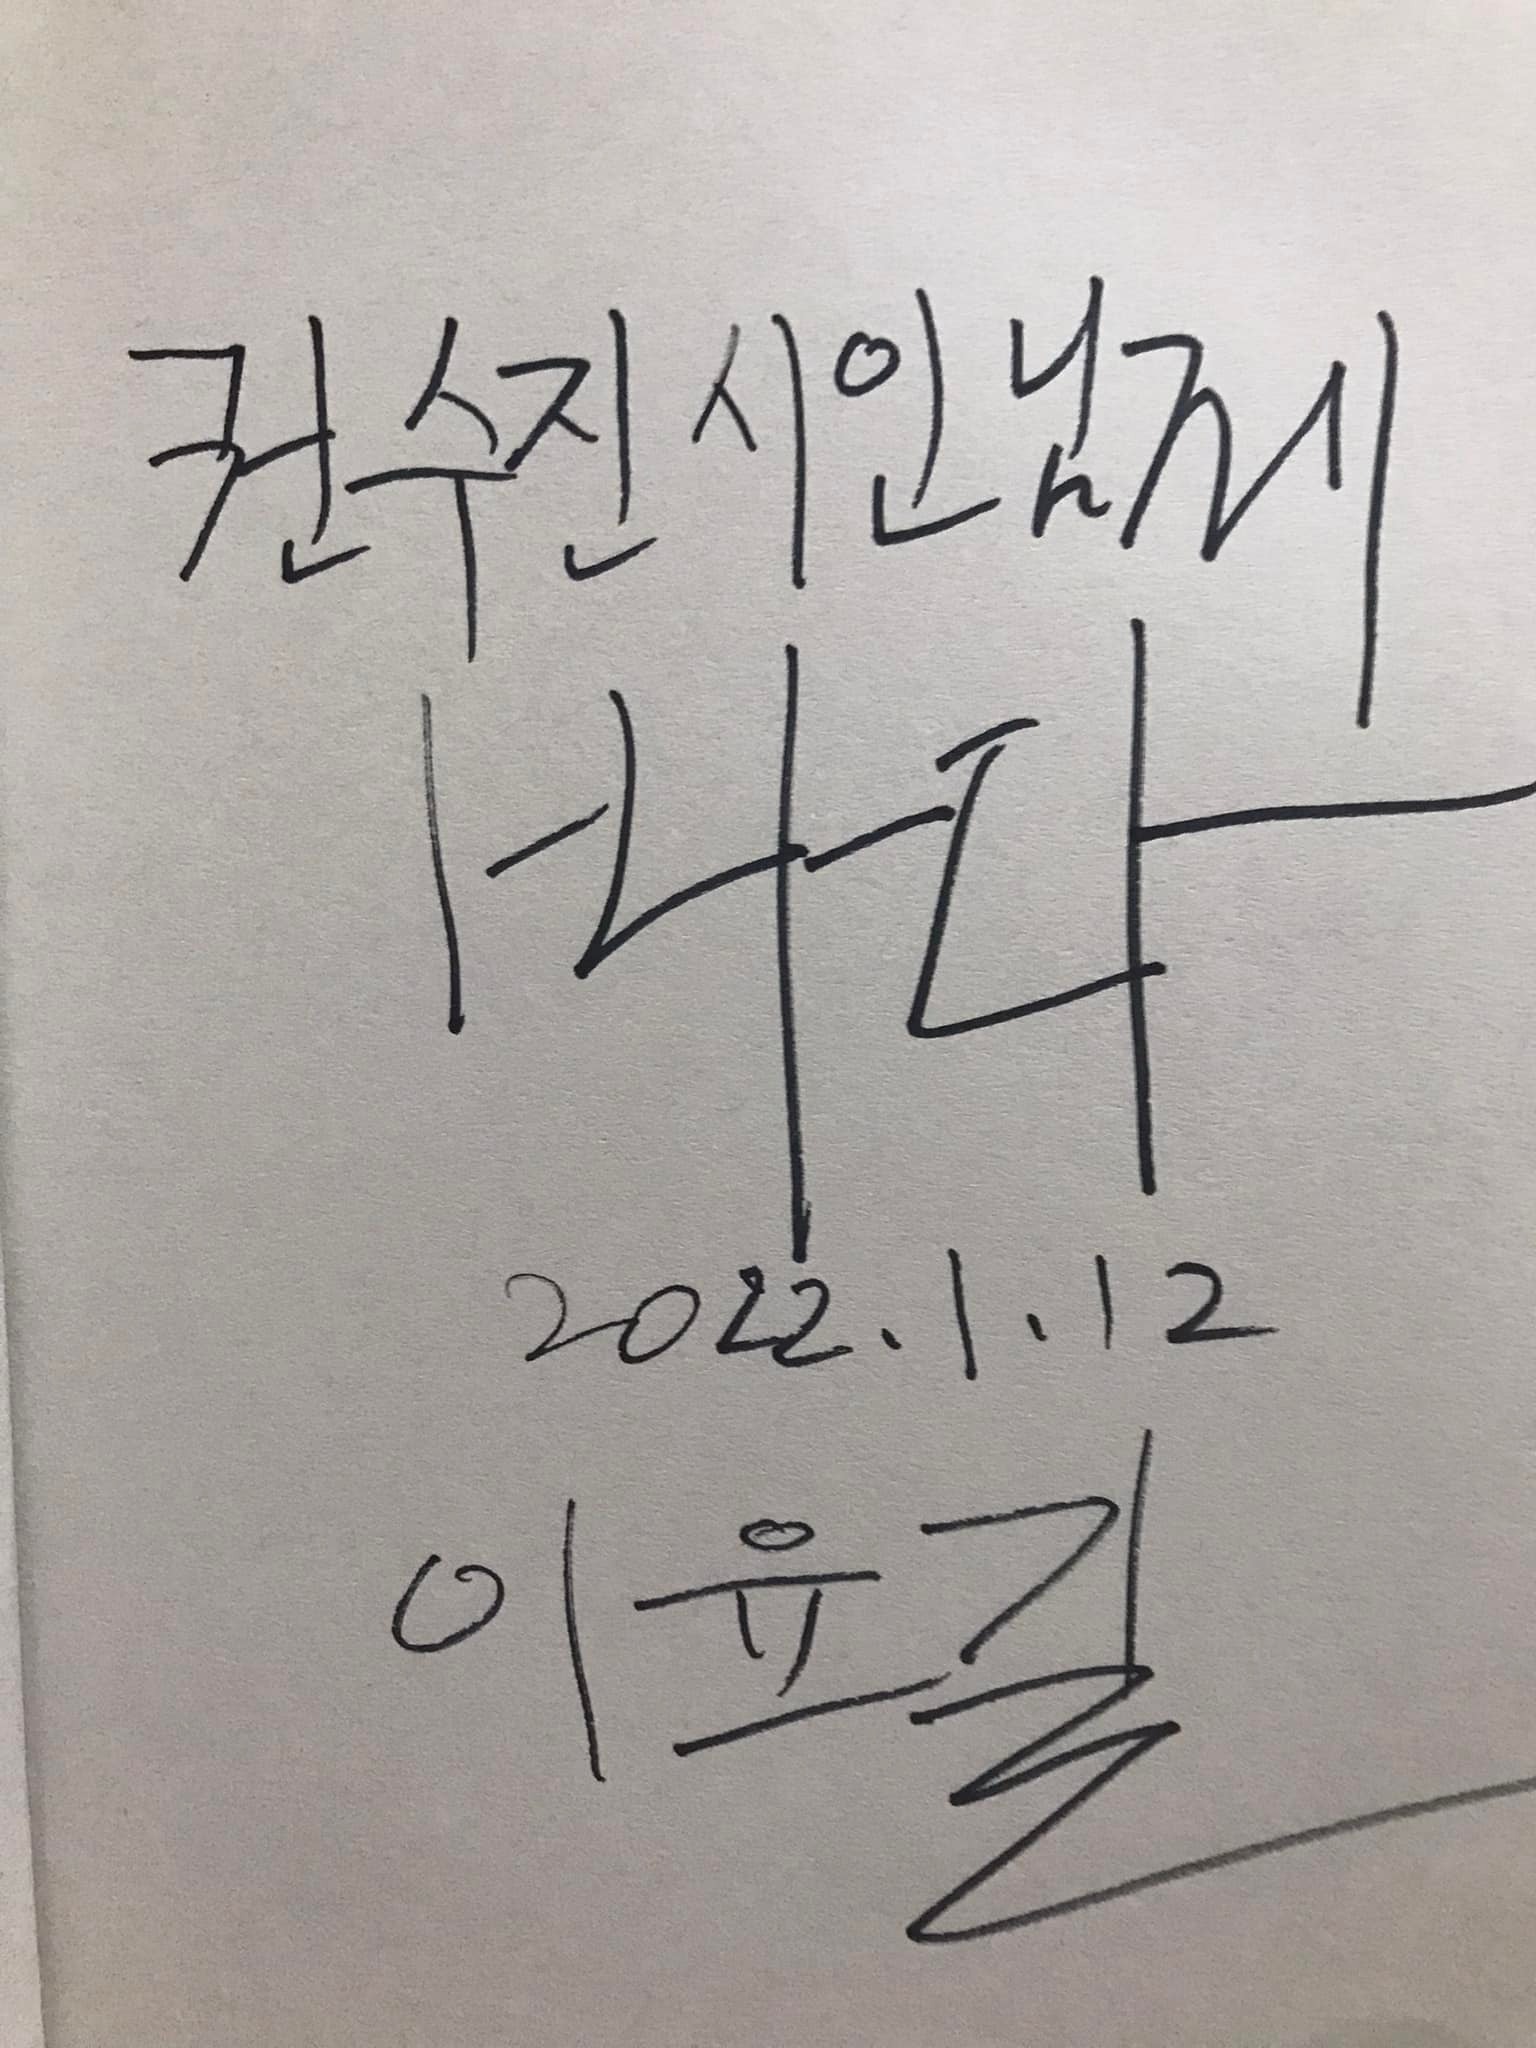 권수진 시인님께
바다
2022.1.12
이윤길